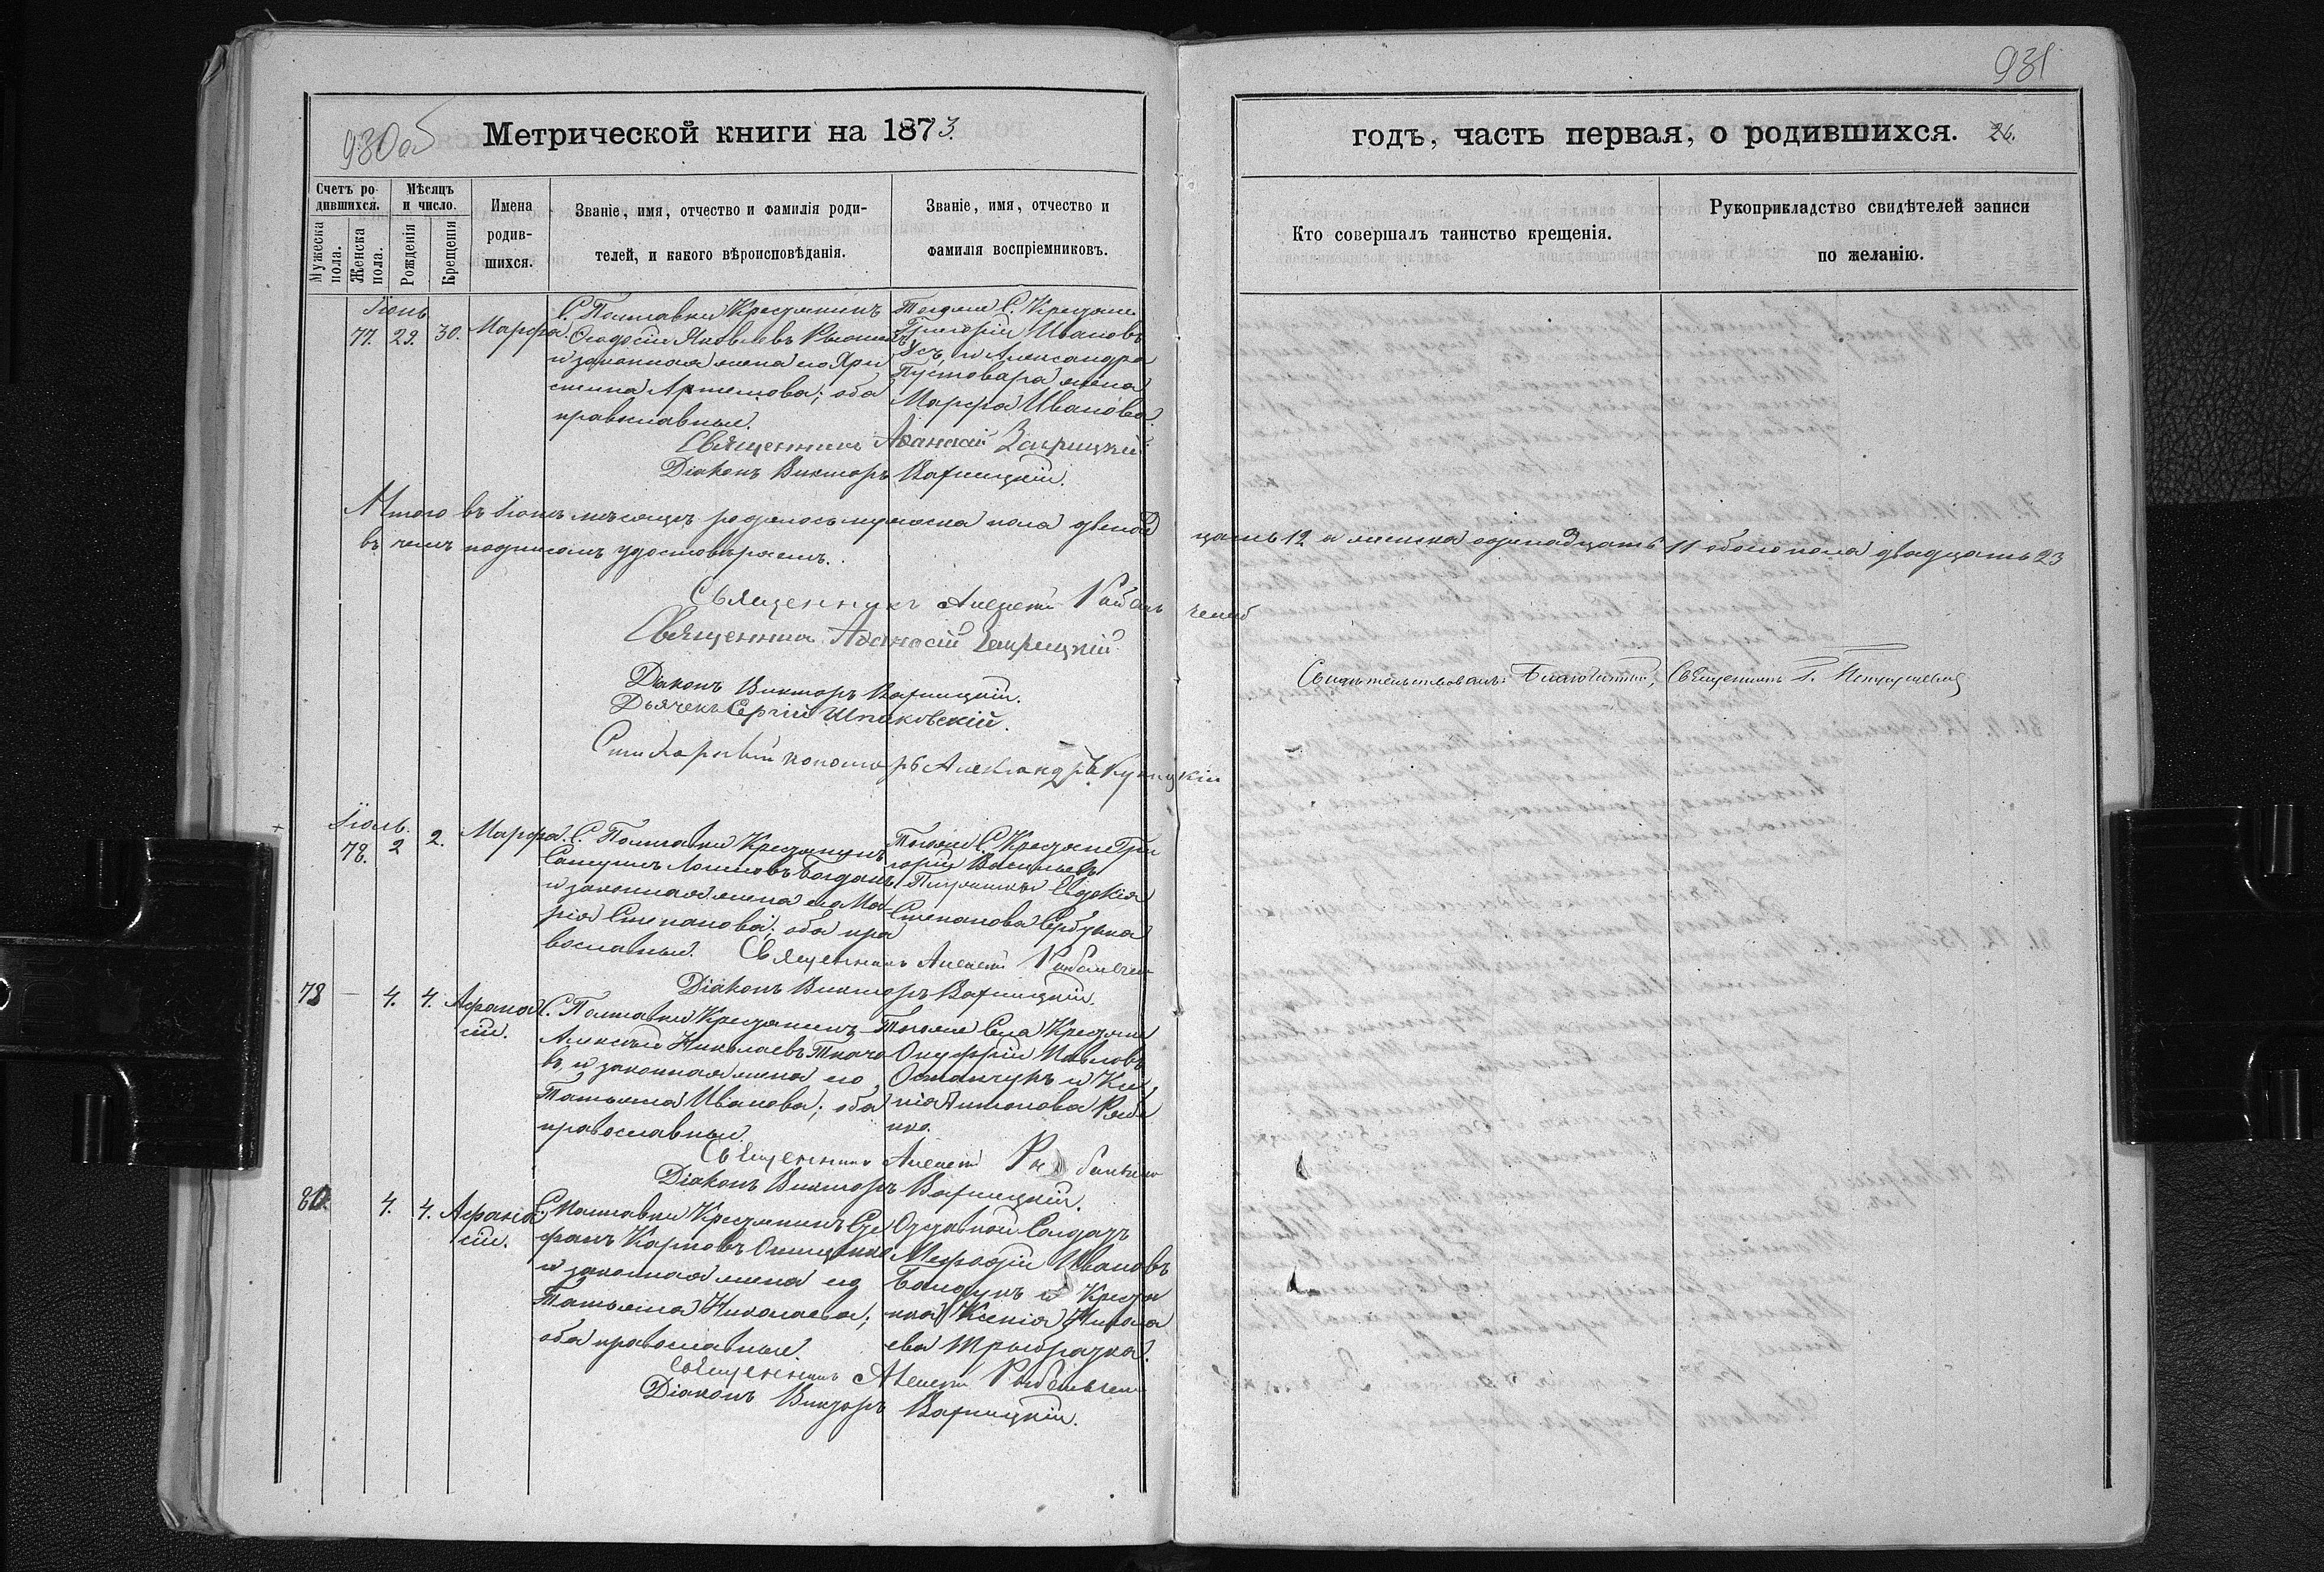 930об
931
Метрической книги на 1873.
годъ, часть первая, о родившихся. 26.
Счетъ родившихся.
Мужеска пола.
Женска пола.
Мѣсяцъ и число.
Рожденія
Крещенія
Имена родившихся.
Званіе, имя, отчество и фамилія родителей, и какого вѣроисповѣданія.
Званіе, имя, отчество и фамилія воспріемниковъ.
Кто совершалъ таинство крещенія.
Рукоприкладство свидѣтелей записи по желанію.
Іюнь
77. 29. 30. Марфа.
С. Полтавки Крестянинъ
Феодосій Яковлевъ
и законная жена его Хри
стина Артемова; оба
православные.
Тогоже С. Крестяне
Григорій Ивановъ
Усъ, и Александра
Пустовара жена
Марфа Иванова.
Священникъ Аѳанасій Заприцкій
Діаконъ Викторъ Варницкій.
Итого въ Іюнѣ мѣсяцѣ родилось мужеска пола двенад
цать 12 и женска одинадцать 11 обоего пола двадцать 23
въ чемъ подписомъ удостовѣряемъ.
Священникъ Алексѣй
Священникъ Аѳанасій Заприцкій
Діаконъ Викторъ Варницкій.
Дьячекъ Сергій Шпаковскій.
Стихарный пономарь Александръ Куницкій
Свидѣтельствовалъ: Благочинный, Священникъ Г.
Іюль.
78. 2 2. Марфа.
С. Полтавки Крестянинъ
Самуилъ Логиновъ Богданъ
и законная жена его Ма-
рія Степанова; оба пра
вославные.
Тогоже С. Крестяне Гри
горій Васильевъ
Евдокія
Степанова Сербулка
Священникъ Алексѣй
Діаконъ Викторъ Варницкій.
78 — 4. 4. Афана
сій.
С. Полтавки Крестянинъ
Алексѣй Николаевъ Ткаче
въ, и законная жена его
Татьяна Иванова; оба
православные.
Тогоже Села Крестяне
Онуфрій Павловъ
Остапчукъ и Ксе
нія Антонова Рябе
нко.
Священникъ Алексѣй
Діаконъ Викторъ Варницкій.
80. 4. 4. Афана
сій.
С. Полтавки Крестянинъ Сте
фанъ Карповъ Онищенко
и законная жена его
Татьяна Николаева;
оба православные.
Отставной Солдатъ
Мефодій Ивановъ
Балдукъ и Крестя
нка Ксенія Никола
ева
Священникъ Алексѣй
Діаконъ Викторъ Варницкій.